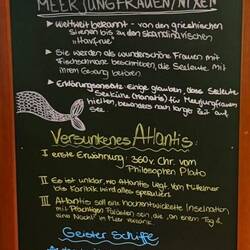 MEERJUNGFRAUEN/NIXEN
▸ weltweit bekannt - von den griechischen
Sirenen bis zu den skandinavischen
"Havfrue"
▸ Sie werden als wunderschöne Frauen mit
Fischschwanz beschrieben, die Seeleute mit
ihrem Gesang betören
▸ Erklärungsansatz: Einige glauben, dass Seeleute
Seekühe (Manatis) für Meerjungfrauen
hielten, besonders nach langer Zeit auf
See
Versunkenes Atlantis:
I erste Erwähnung: 360 v. Chr. vom
Philosophen Plato
II Es ist unklar, wo Atlantis liegt. Vom Mittelmeer
bis Karibik wird alles spekuliert
III Atlantis soll ein hochentwickelte Inselnation
mit prächtigen Palästen sein, die "an einem Tag &
eine Nacht" im Meer
Geister Schiffe